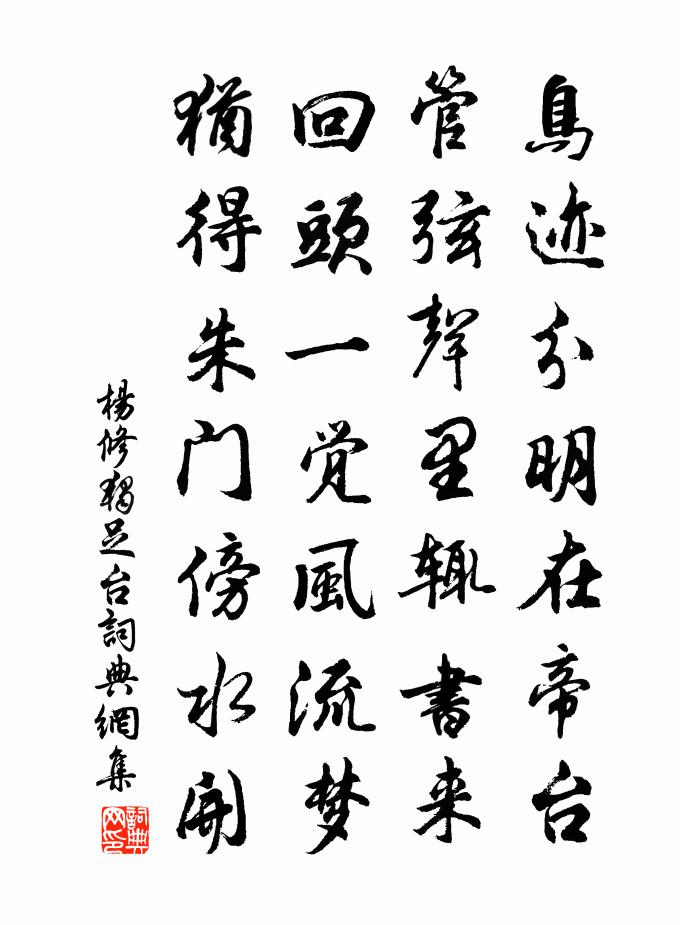 鳥迹分明在帝台
管弦聲里輒書来
回頭一觉風流梦
猶得朱门傍水開
楊修獨足台詞典網集
詞典
网印